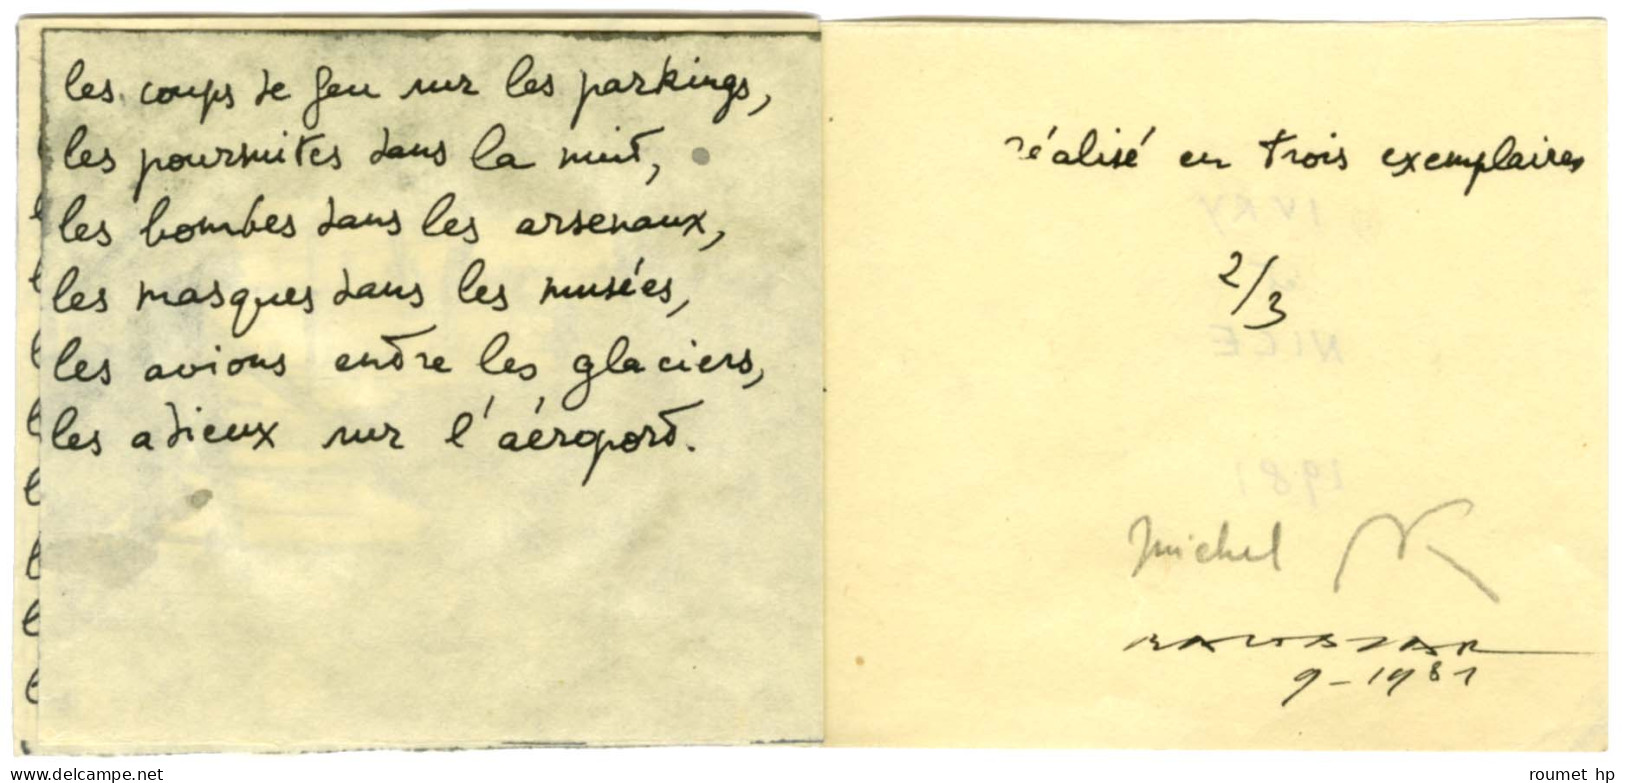 les coups de feu sur les parkings,
les poursuites dans la nuit,
les bombes dans les arsenaux,
les masques dans les musées,
les avions entre les glaciers,
les adieux sur l'aéroport.
réalisé en trois exemplaires
2/3
IVRY
NICE
1981
Michel
9-1981
roumet hp
www.delcampe.net